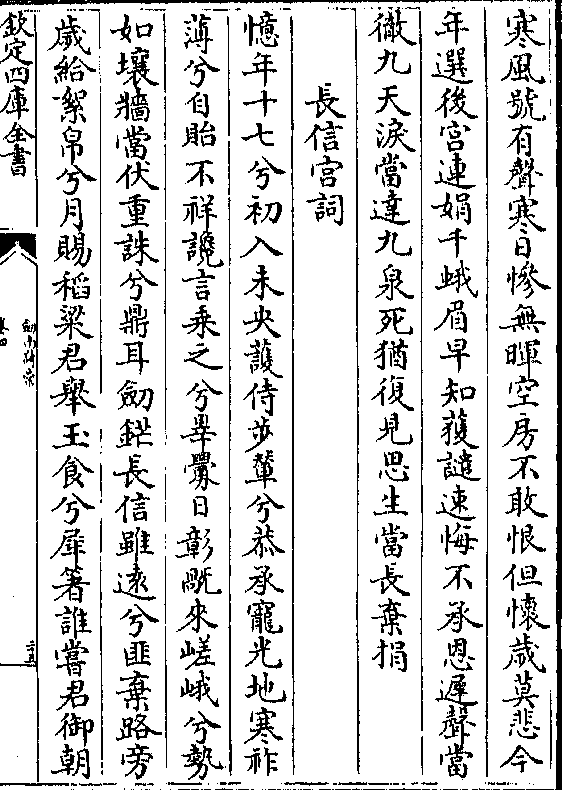 寒風號有聲寒日慘無暉空房不敢恨但懷歲莫悲今
年選後宮連娟千蛾眉早知獲譴速悔不承恩遲聲當
徹九天淚當達九泉死猶復見思生當長棄捐
長信宮詞
憶年十七兮初入未央䕶侍步輦兮恭承寵光地寒祚
薄兮自貽不祥讒言乘之兮辠釁日彰旤來嵯峨兮勢
如壞牆當伏重誅兮鼎耳劒鋩長信雖遠兮匪棄路旁
歲給絮帛兮月賜稻粱君舉玉食兮犀箸誰嘗君御朝
欽定四庫全書
劍南詩稾
卷四
二十五